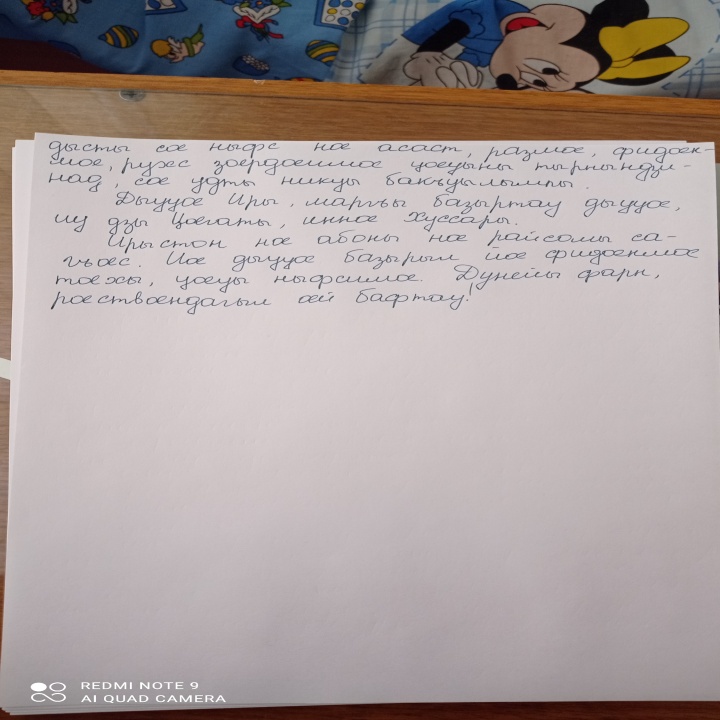 дысты сæ ныфс нæ асаст, размæ, фидæн-
мæ, рухс зæрдæимæ цæуыны тырнындзи-
над, сæ удты никуы бакъуылымпы.
Дыууæ Иры, маргъы базыртау дыууæ,
иу дзы Цæгаты, иннæ Хуссары.
Ирыстон нæ абоны нæ райсомы са-
гъæс. Йæ дыууæ базырыл йæ фидæнмæ
тæхы, цæуы ныфсимæ. Дунейы фарн,
рæствæндагыл æй бафтау!
REDMI NOTE 9
AI QUAD CAMERA